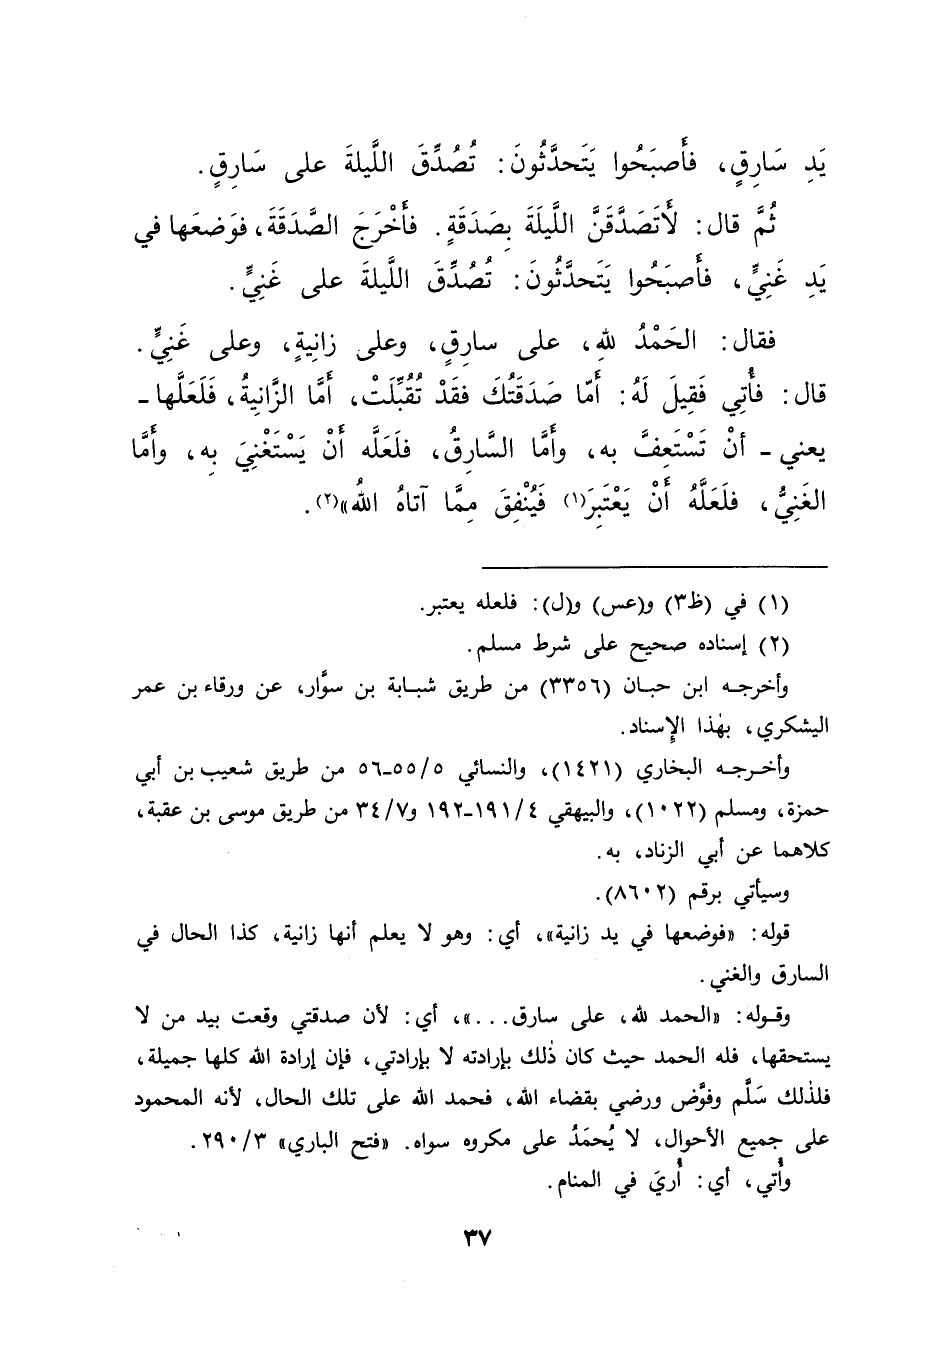 يَدِ سَارِقٍ، فأَصبَحُوا يَتَحدَّثُونَ: تُصُدِّقَ اللَّيلةَ على سَارِقٍ.
ثُمَّ قال: لَأَتَصَدَّقَنَّ اللَّيلَةَ بِصَدَقَةٍ. فأَخْرَجَ الصَّدَقَةَ، فوَضعَها في
يَدِ غَنِيٍّ، فأَصبَحُوا يَتَحدَّثُونَ: تُصُدِّقَ اللَّيلةَ على غَنِيٍّ.
فقال: الحَمْدُ للهِ، على سارِقٍ، وعلى زانِيةٍ، وعلى غَنِيٍّ.
قال: فأُتِي فَقِيلَ لَهُ: أَمّا صَدَقَتُكَ فقَدْ تُقُبِّلَتْ، أَمَّا الزَّانِيةُ، فَلَعَلَّها ـ
يعني ـ أنْ تَسْتَعِفَّ به، وأَمَّا السَّارِقُ، فلَعَلَّه أَنْ يَسْتَغْنِيَ بِه، وأَمَّا
الغَنِيُّ، فلَعَلَّهُ أَنْ يَعْتَبِرَ(١) فَيُنْفِقَ مِمَّا آتاهُ اللهُ»(٢).
(١) في (ظ٣) و(عس) و(ل): فلعله يعتبر.
(٢) إسناده صحيح على شرط مسلم.
وأخرجه ابن حبان (٣٣٥٦) من طريق شبابة بن سوَّار، عن ورقاء بن عمر
اليشكري، بهٰذا الإِسناد.
وأخرجه البخاري (١٤٢١)، والنسائي ٥/٥٥-٥٦ من طريق شعيب بن أبي
حمزة، ومسلم (١٠٢٢)، والبيهقي ٤/١٩١-١٩٢ و٧/٣٤ من طريق موسى بن عقبة،
كلاهما عن أبي الزناد، به.
وسيأتي برقم (٨٦٠٢).
قوله: «فوضعها في يد زانية»، أي: وهو لا يعلم أنها زانية، كذا الحال في
السارق والغني.
وقوله: «الحمد لله، على سارق...»، أي: لأن صدقتي وقعت بيد من لا
يستحقها، فله الحمد حيث كان ذٰلك بإرادته لا بإرادتي، فإن إرادة الله كلها جميلة،
فلذٰلك سَلَّم وفوَّض ورضي بقضاء الله، فحمد الله على تلك الحال، لأنه المحمود
على جميع الأحوال، لا يُحمَدُ على مكروه سواه. «فتح الباري» ٣/٢٩٠.
وأُتي، أي: أُريَ في المنام.
٣٧